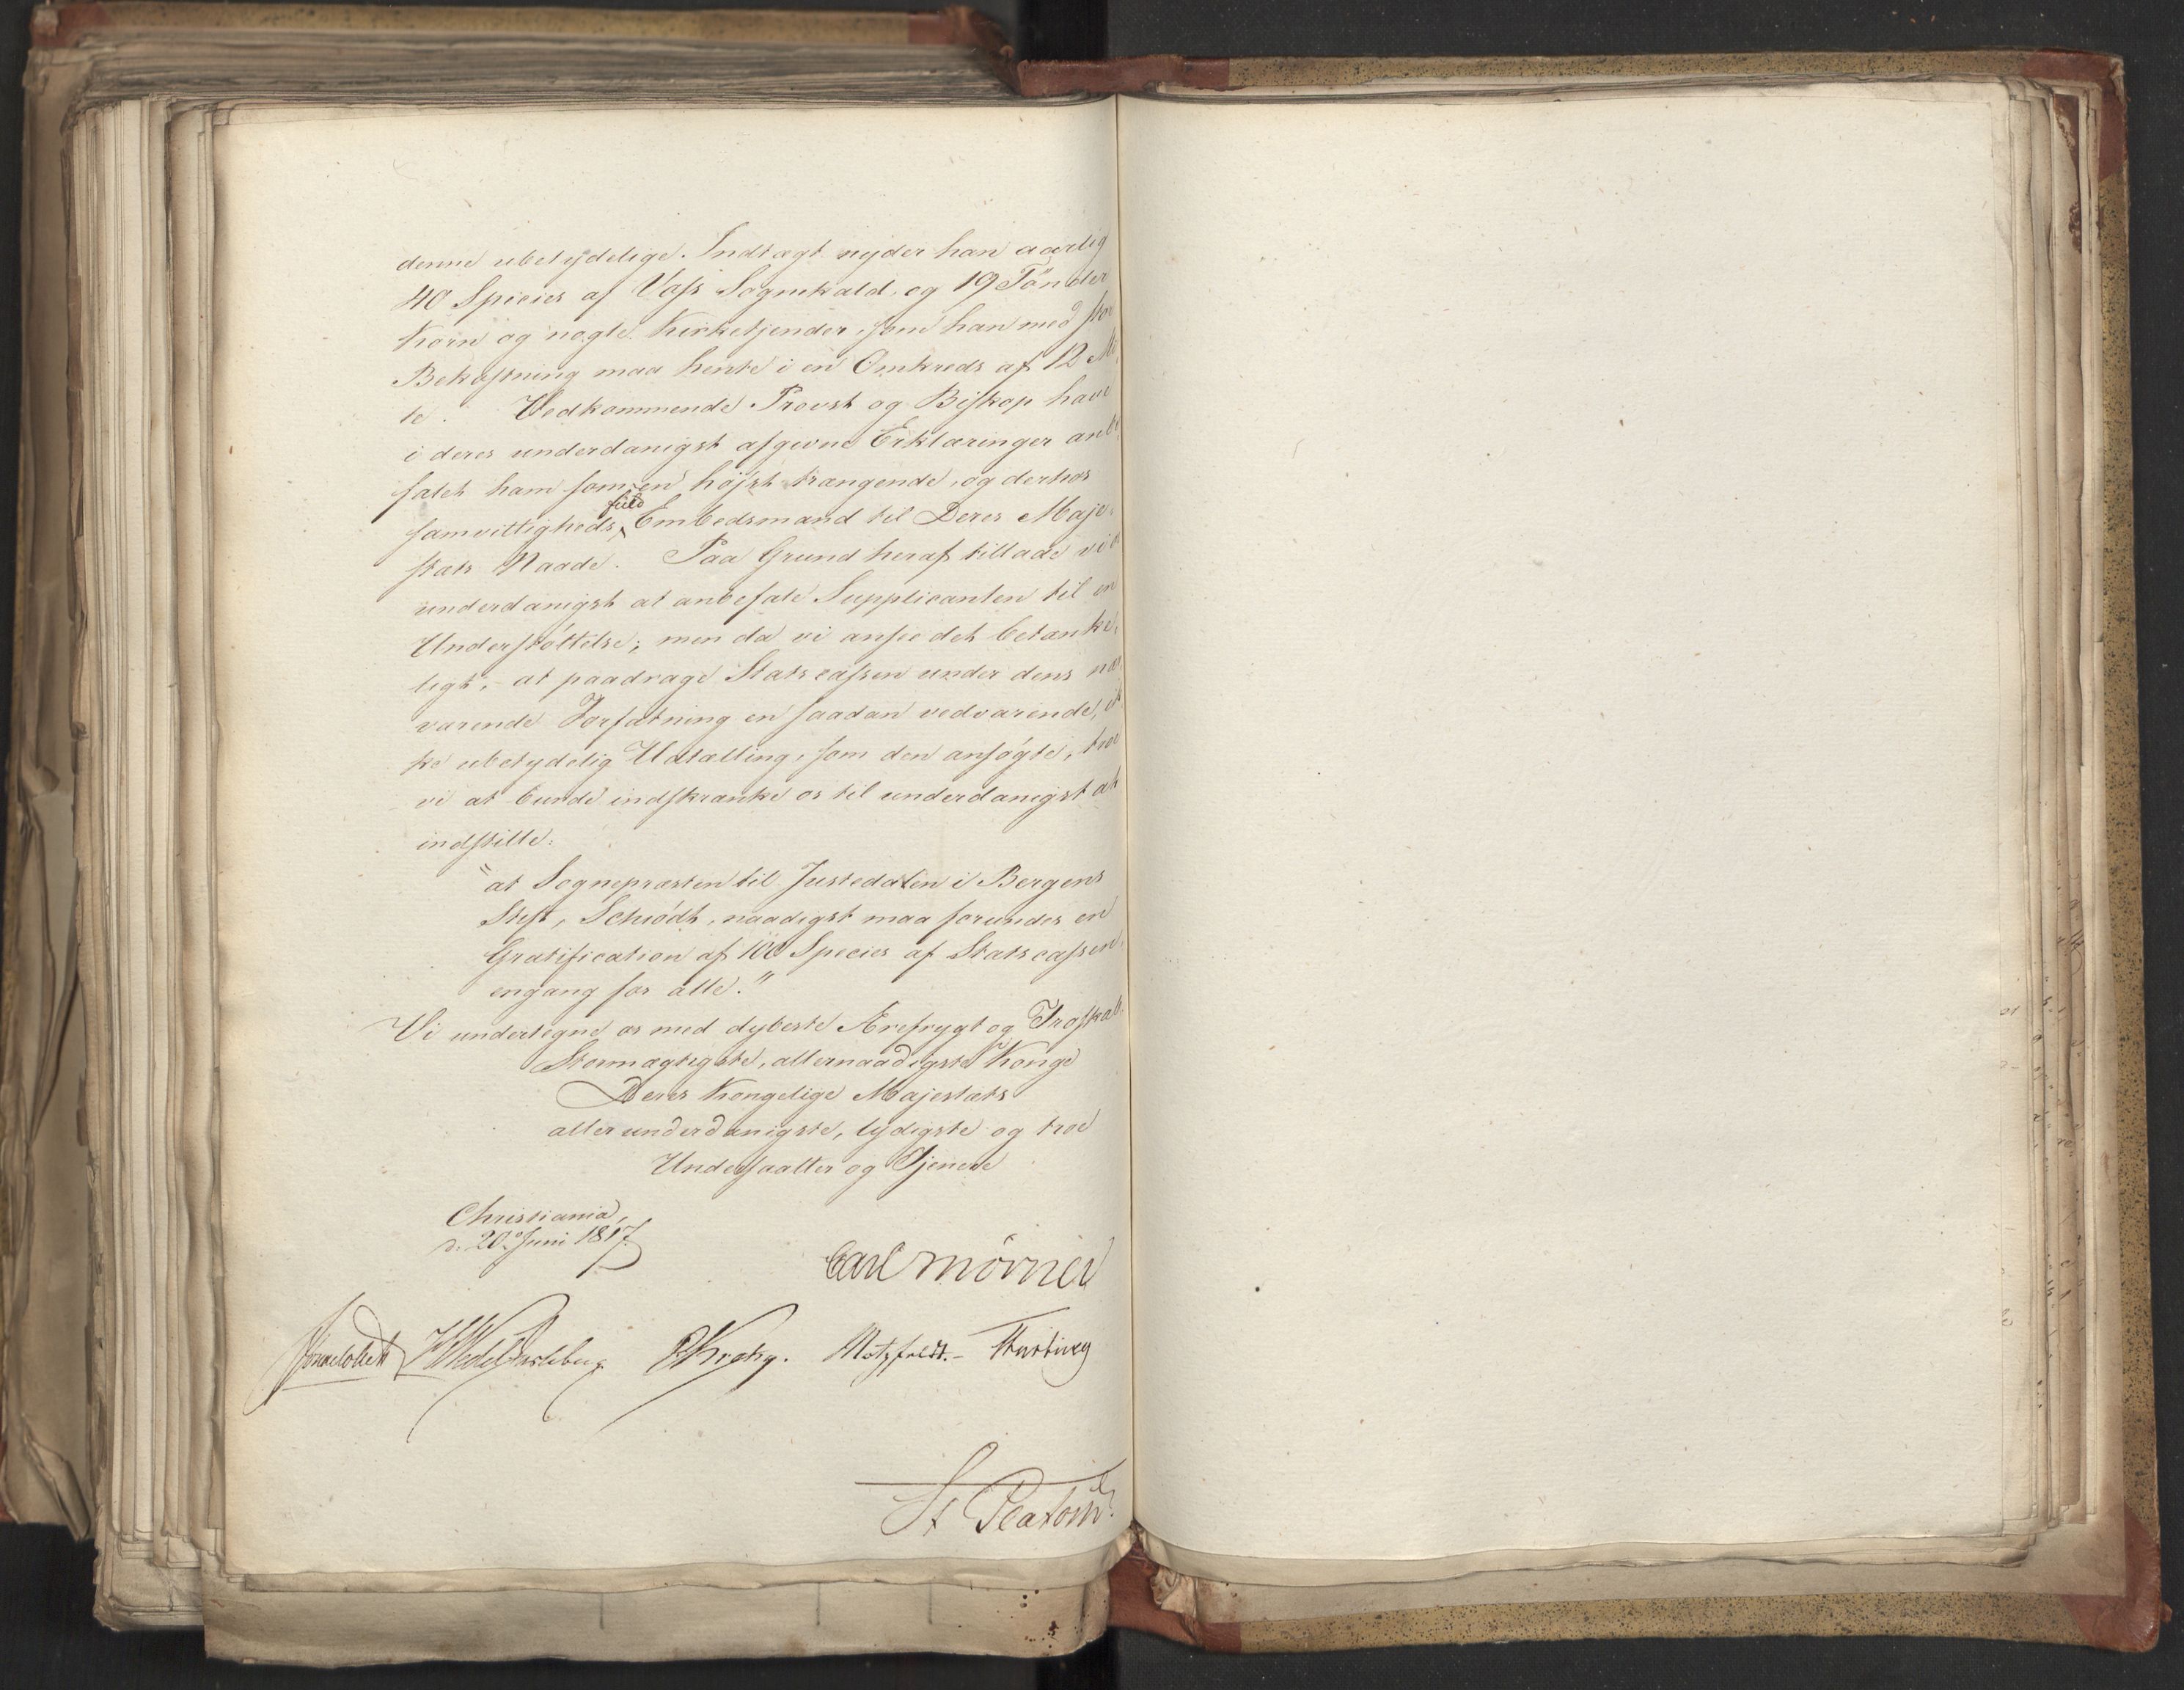 denne ubetydelige Indtægt nyder han aarlig
40 Species af Vass Sognekald og 19 Tönder
Korn og nogle Kirketjender, som han med stor
Bekostning maa hente i en Omkreds af 12 Mi-
le. Vedkommende Provst og Biskop have
i deres underdanigst afgivne Erklæringer anbe-
falet ham som en højst trængende, og derhos
samvittighedsfuld Embedsmand til Deres Maje-
stæts Naade. Paa Grund heraf tillade vi os
underdanigst at anbefale Supplicanten til en
Understöttelse; men da vi ansee det betænke-
ligt, at paadrage Statscassen under dens nær-
værende Forfatning en saadan vedvarende, ik-
ke ubetydelig Udtælling, som den ansögte, troe
vi at burde indskrænke os til underdanigst at
indstille:
"at Sognepræsten til Justedalen i Bergens
Stift, Schiödt, naadigst maa forundes en
Gratification af 100 Species af Statscassen,
engang for alle."
Vi undertegne os med dybeste Ærefrygt og Troskab.
Stormægtigste, allernaadigste Konge
Deres Kongelige Majestæts
allerunderdanigste, lydigste og troe
Undersaatter og Tjenere
Christiania,
d. 20de Juni 1817.
Carl Mörner
Sommerhielm HWedelJarlsberg CKrohg. Motzfeldt.